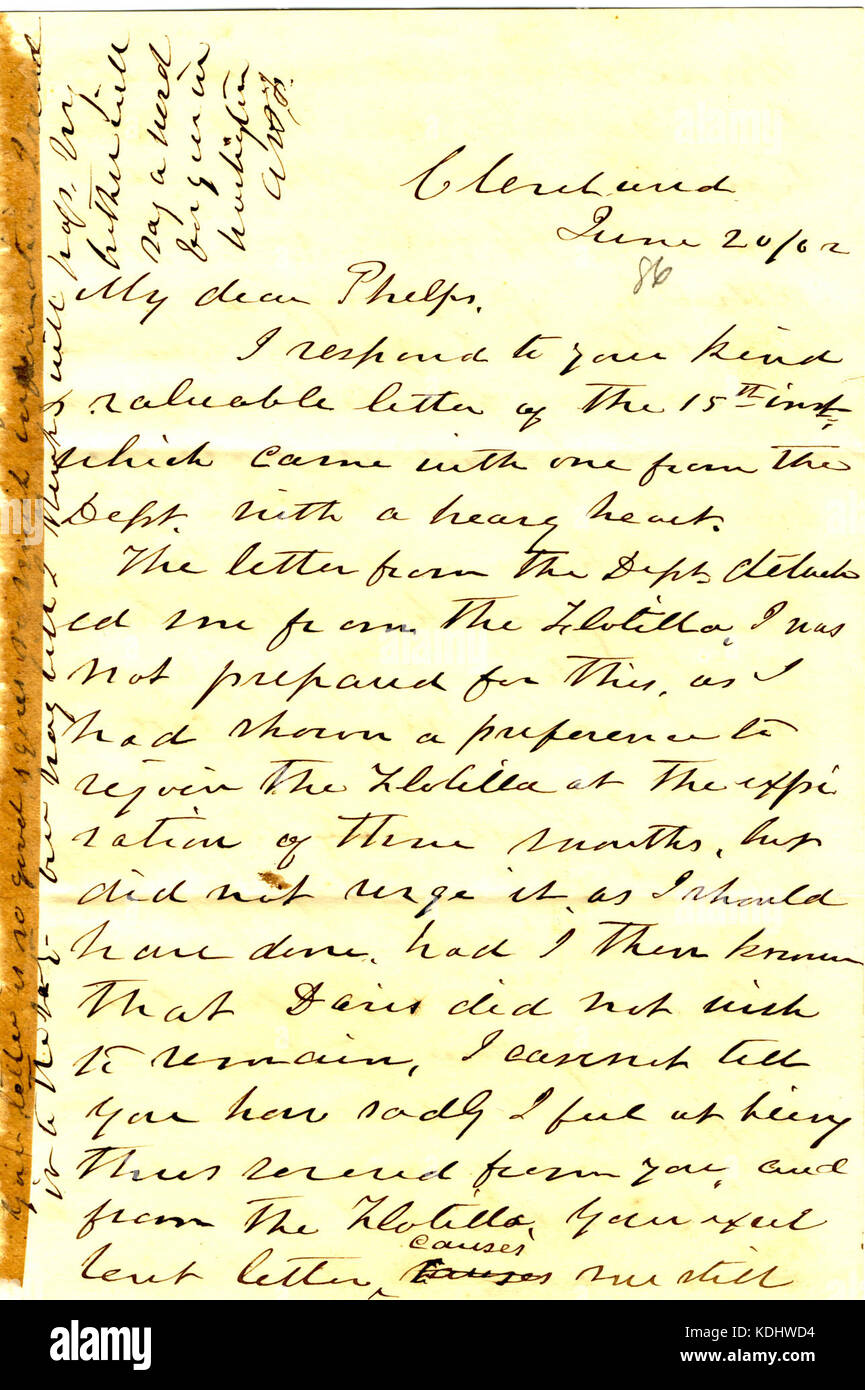 Cleveland
June 20/62
86
My dear Phelps.
I respond to your kind
valuable letter of the 15th inst,
which came with one from the
Dept. with a heavy heart.
The letter from the Dept. detach
ed me from the Flotilla, I was
not prepared for this, as I
had shown a preference to
rejoin the Flotilla at the expi
ration of three months, but
did not urge it as I should
have done, had I then known
that Davis did not wish
to remain, I cannot tell
you how sadly I feel at being
thus severed from you, and
from the Flotilla. Your excel
lent letter, causes me still
brother will
say a word
for you in
Washington
A.H.F.
Your letter is so good &
send
it to the Sec.
alamy
alamy stock photo
Image ID: KDHWD4
www.alamy.com